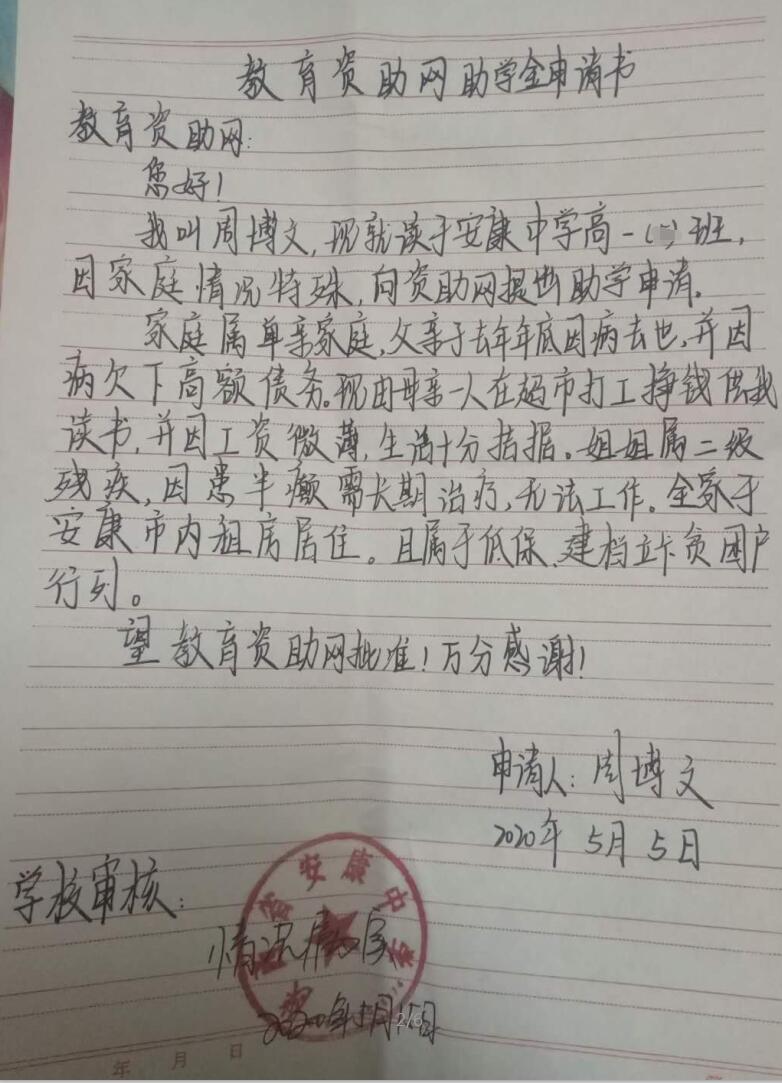 教育资助网助学金申请书
教育资助网:
您好!
我叫周博文,现就读于安康中学高一( )班,
因家庭情况特殊,向资助网提出助学申请.
家庭属单亲家庭,父亲于去年年底因病去也,并因
病欠下高额债务。现由母亲一人在超市打工挣钱供我
读书,并因工资微薄,生活十分拮据。姐姐属二级
残疾,因患羊癫需长期治疗,无法工作。全家于
安康市内租房居住。且属于低保、建档立卡贫困户
行列。
望教育资助网批准!万分感谢!
申请人:周博文
2020年5月5日
学校审核:
省安康中学
情况属实
2020年5月 日
2/6
年 月 日